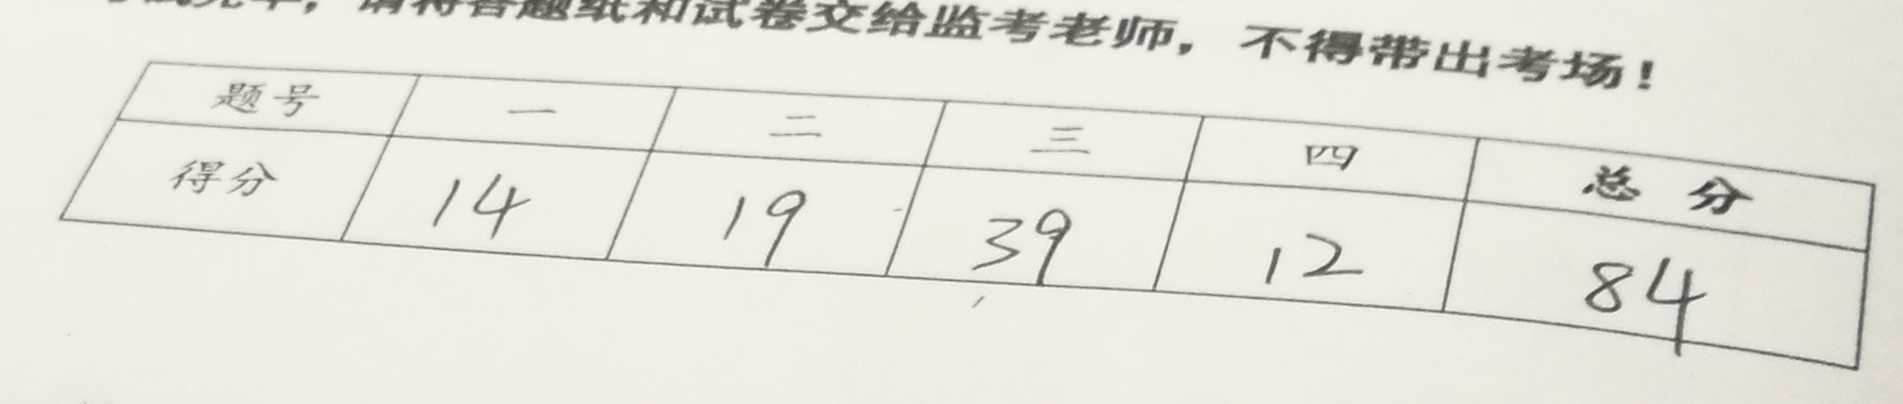 请将答题纸和试卷交给监考老师，不得带出考场！
题号 一 二 三 四 总 分
得分 14 19 39 12 84